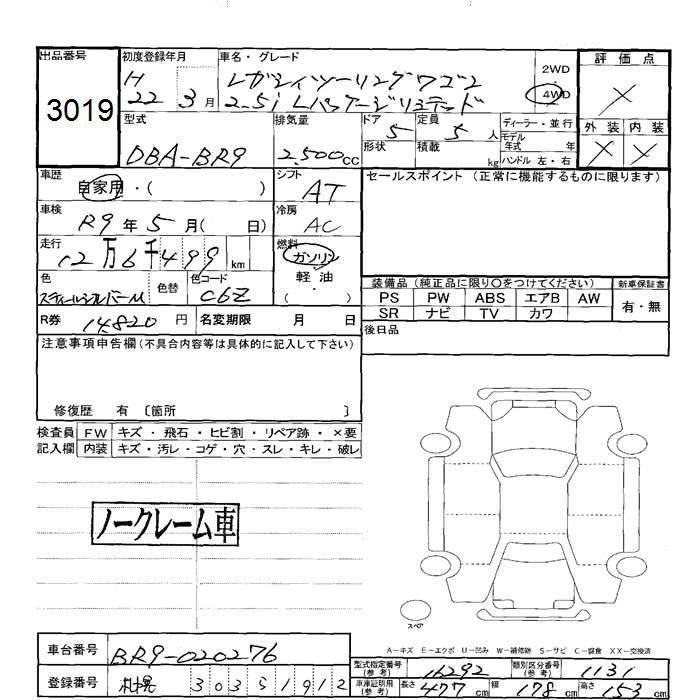 出品番号
3019
初度登録年月
H 22 3月
車名・グレード
レガシィツーリングワゴン
2.5i Lパッケージリミテッド
2WD
4WD
評価点
×
外装 内装
× ×
型式
DBA-BR9
排気量
2,500cc
ドア 5
形状
定員 5人
積載 kg
ディーラー・並行
モデル年式 年
ハンドル 左・右
車歴
自家用・( )
シフト
AT
セールスポイント (正常に機能するものに限ります)
車検
R9年5月( 日)
冷房
AC
走行
12万6千499km
燃料
ガソリン
軽油
( )
色
スティールシルバーM
色替
色コード
C6Z
装備品(純正品に限り○をつけてください) 新車保証書
PS PW ABS エアB AW
SR ナビ TV カワ
有・無
R券 14820円 名変期限 月 日
後日品
注意事項申告欄(不具合内容等は具体的に記入して下さい)
修復歴 有 〔箇所 〕
検査員記入欄
FW キズ・飛石・ヒビ割・リペア跡・×要
内装 キズ・汚レ・コゲ・穴・スレ・キレ・破レ
ノークレーム車
スペア
A-キズ E-エクボ U-凹み W-補修跡 S-サビ C-腐食 XX-交換済
車台番号 BR9-020276
登録番号 札幌 303 5 1912
型式指定番号(参考) 16292 類別区分番号(参考) 1131
車庫証明用(参考) 長さ 477cm 幅 178cm 高さ 153cm